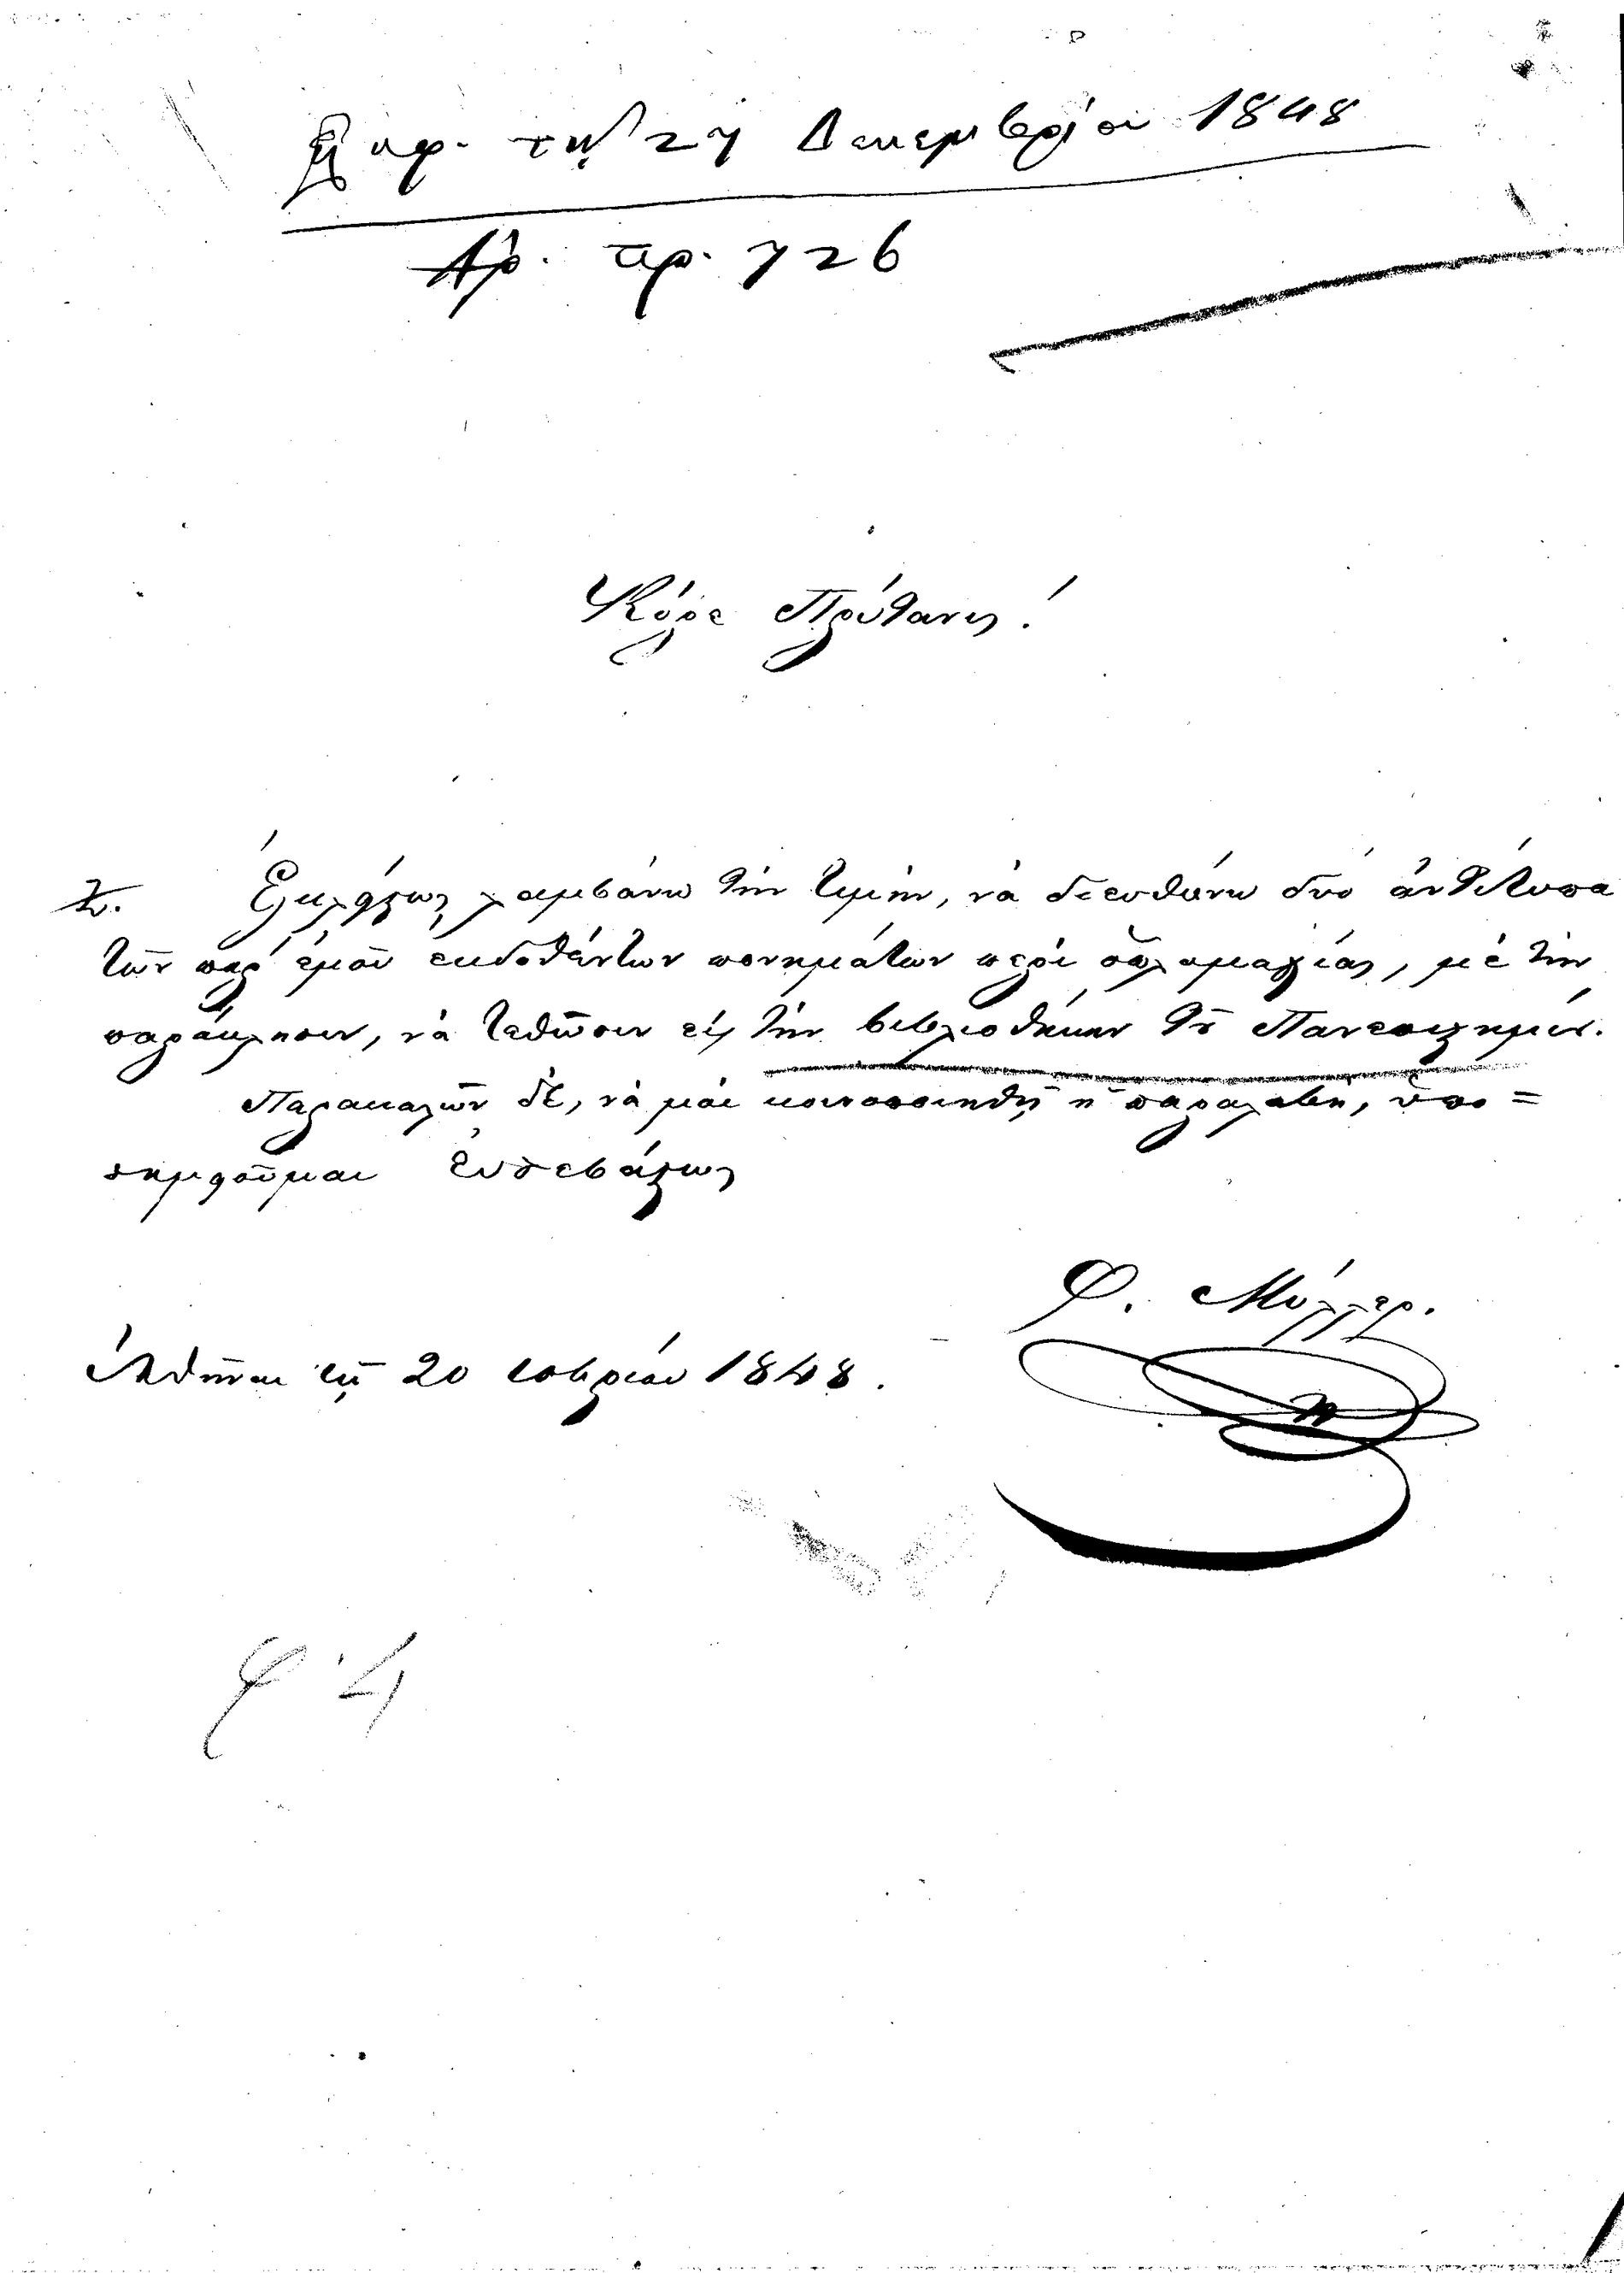 Παρ. τῇ 27 Δεκεμβρίου 1848
Ἀρ. πρ. 726
Κύριε Πρύτανις!
Εὐχαρίστως λαμβάνω τὴν τιμήν, νὰ διευθύνω δύο ἀντίτυπα
τῶν παρ' ἐμοῦ ἐκδοθέντων πονημάτων περὶ ὁπλομαχίας, μὲ τὴν
παράκλησιν, νὰ τεθῶσιν εἰς τὴν βιβλιοθήκην τοῦ Πανεπιστημίου.
Παρακαλῶν δέ, νὰ μοὶ κοινοποιηθῇ ἡ παραλαβή, ὑπο =
σημειοῦμαι εὐσεβάστως
Φ. Μύλλερ.
Ἀθῆναι τῇ 20 1848.